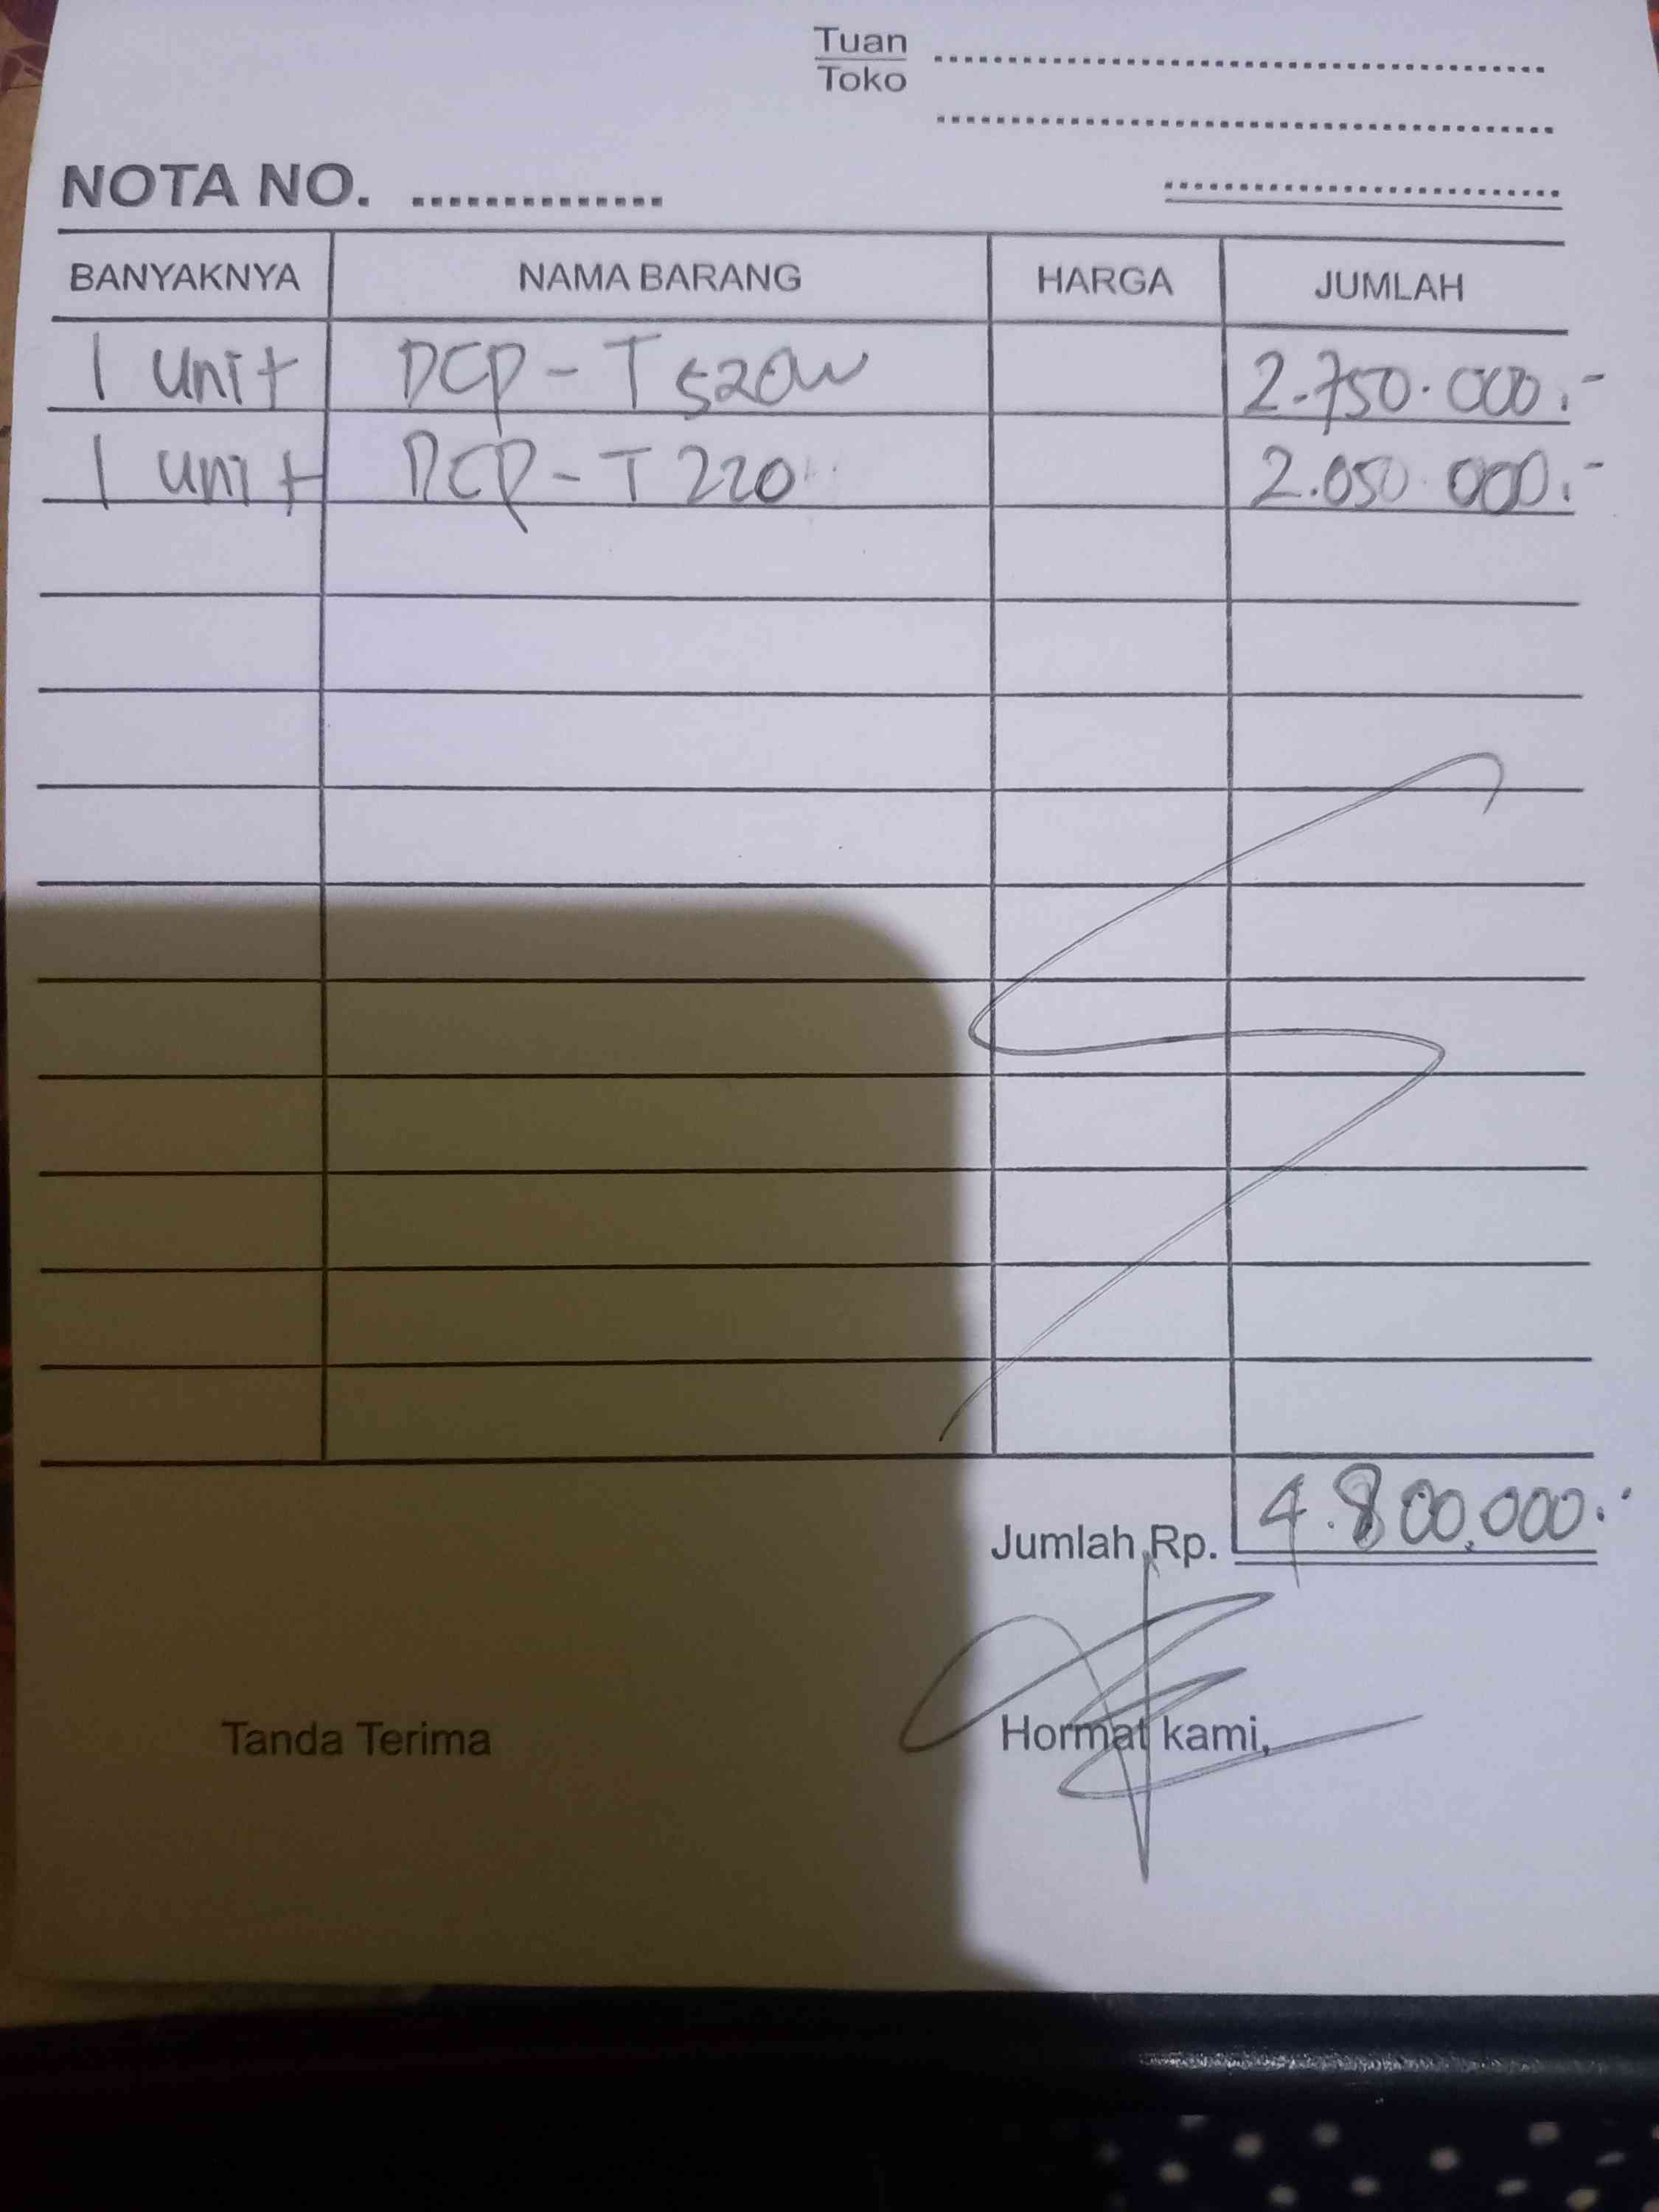 Tuan
Toko
NOTA NO.
BANYAKNYA NAMA BARANG HARGA JUMLAH
1 unit DCP-T520W 2.750.000.-
1 unit DCP-T220 2.050.000.-
Jumlah Rp. 4.800.000.-
Tanda Terima Hormat kami,